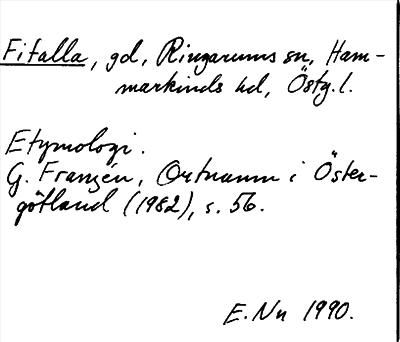 Fifalla, gd, Ringarums sn, Ham-
markinds hd, Östg.l.
Etymologi.
G. Franzén, Ortnamn i Öster-
götland (1982), s. 56.
E. Nn 1990.